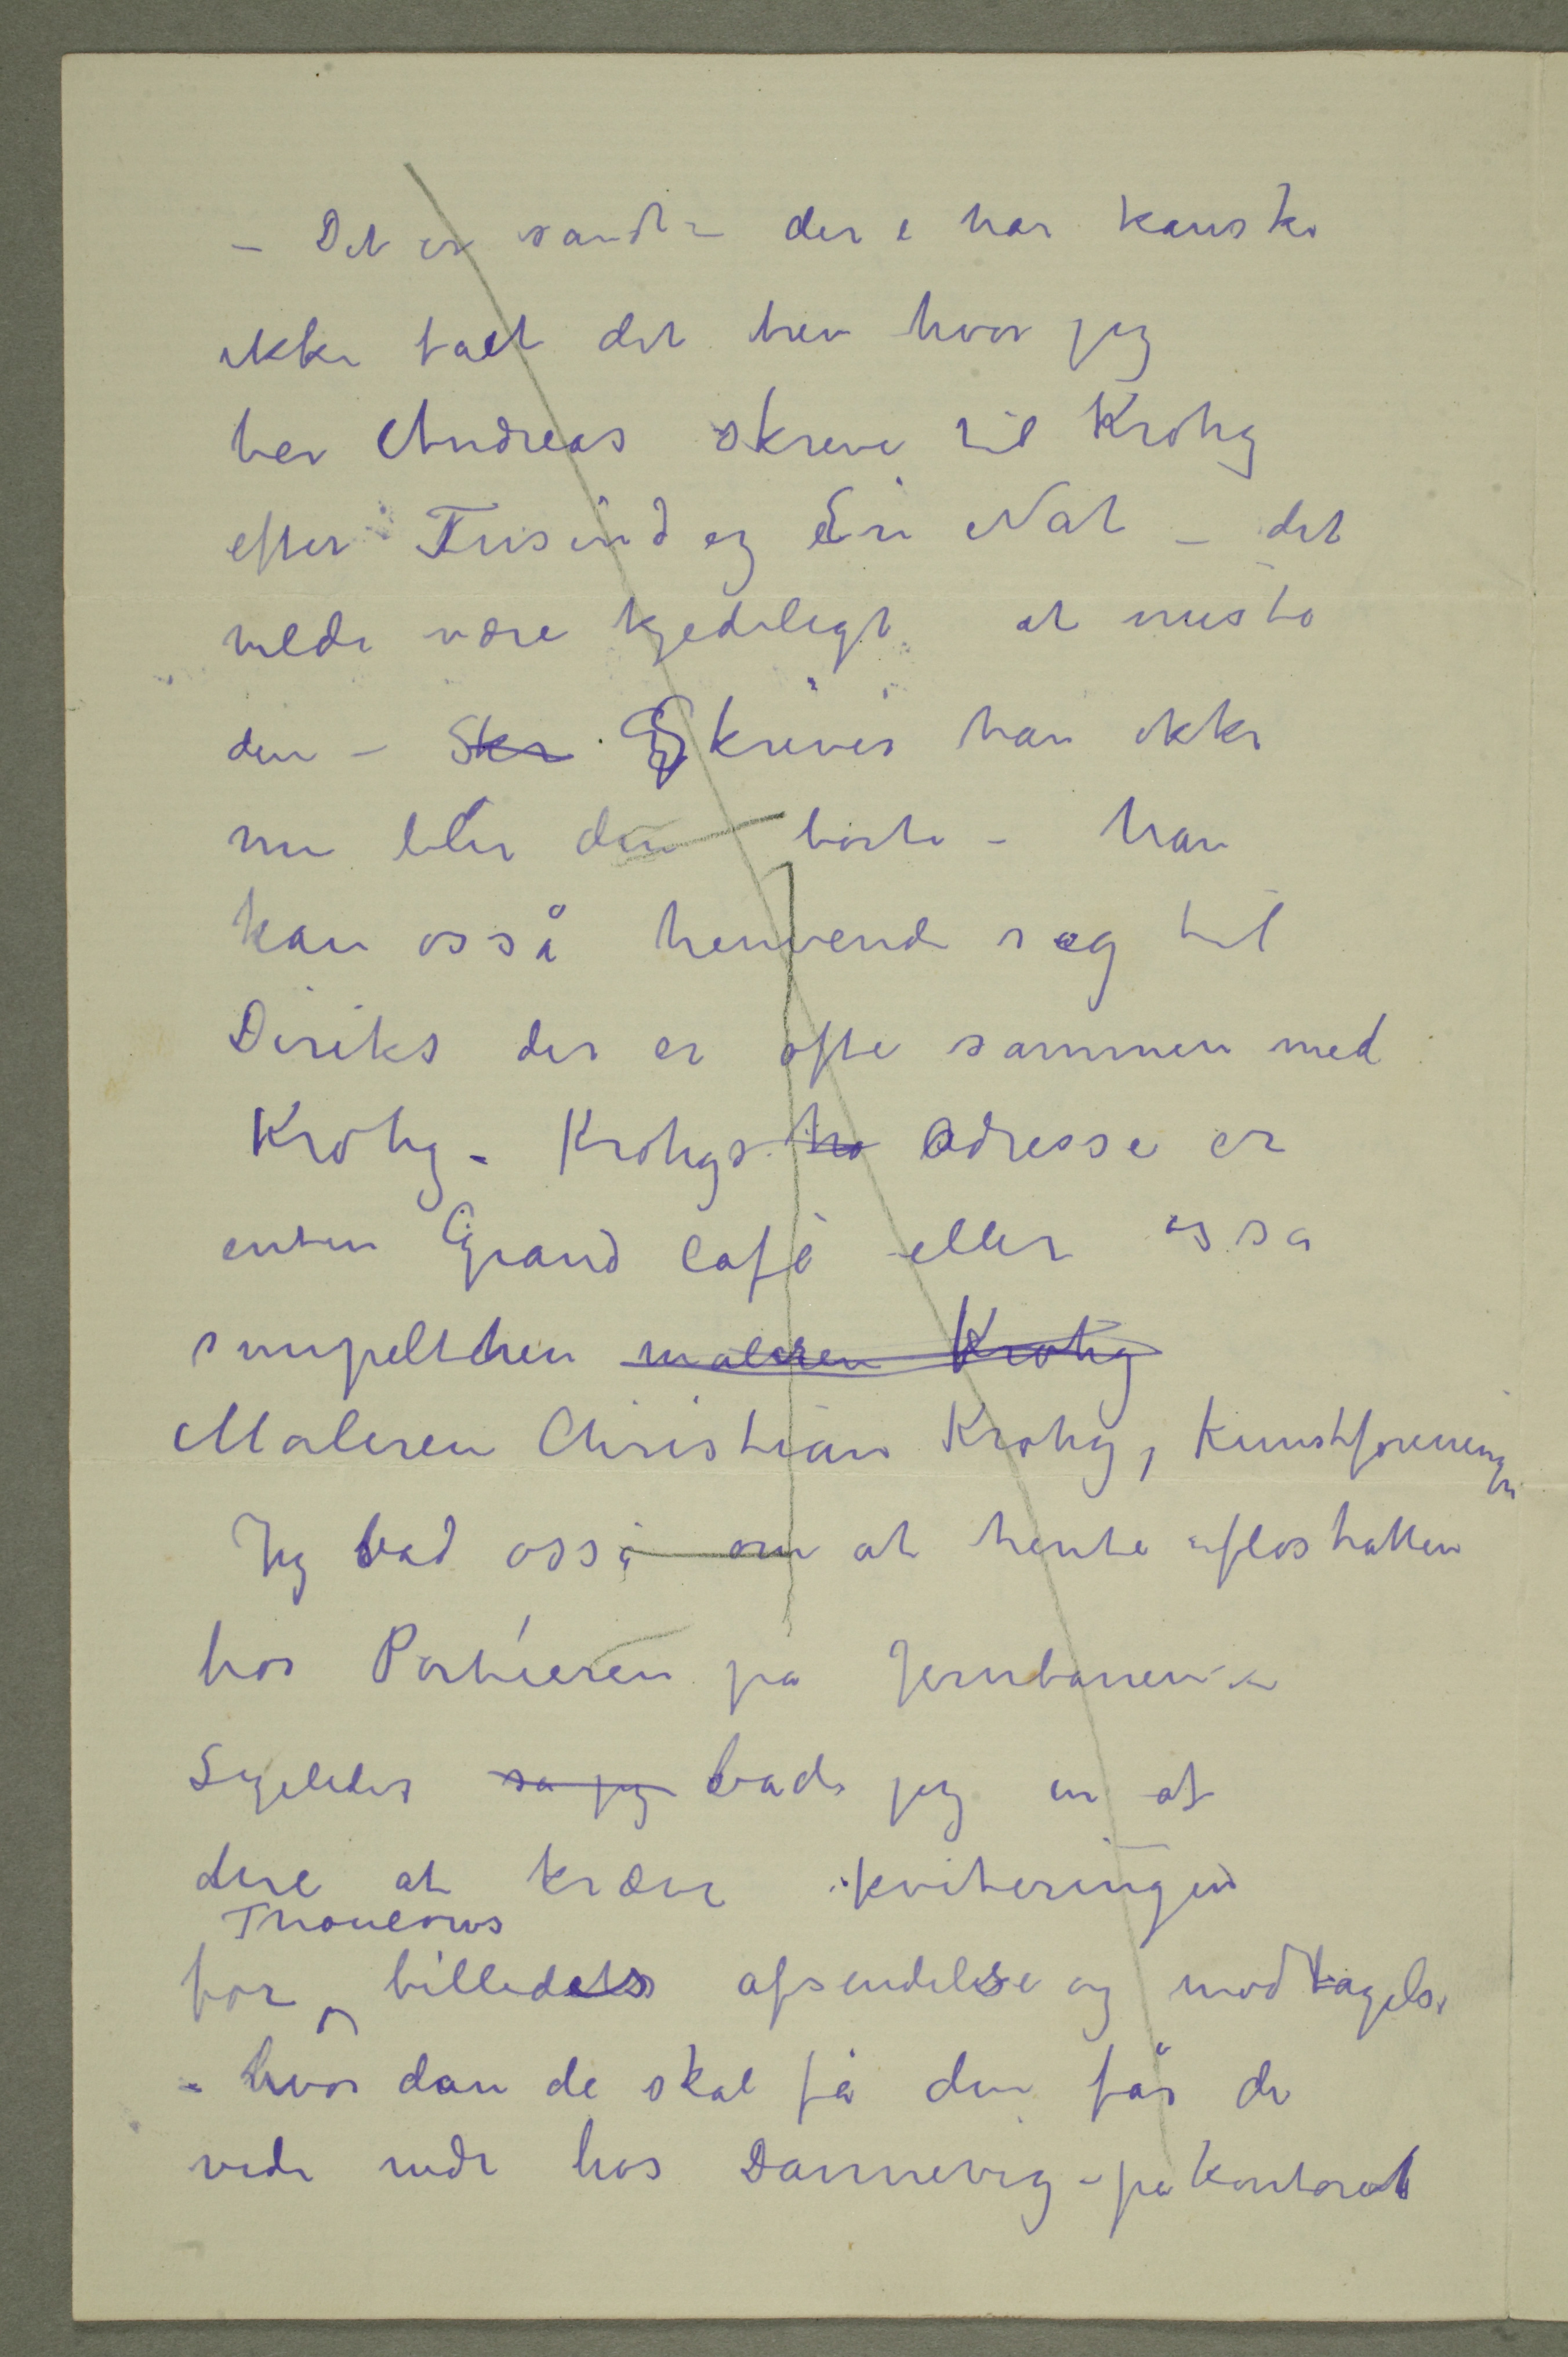 – Det er sandt – der e har kanske
ikke faet det brev hvor jeg
ber Andreas skreve til Krohg
efter Tusind og En Nat – det
vilde være kjedeligt at miste
den – Skr Skriver han ikke
nu blir den borte – han
kan osså henvende seg til
Diriks der er ofte sammen med
Krohg – Krohgs ho Adresse er
enten Grand Café eller osså
simpelthen maleren Krohg
Maleren Christian Krohg, Kunstforeningen
Jeg bad osså om at hente floshatten
hos Portieren på Jernbanen –
Ligeledes så jeg bade jeg en af
dere at kræve kviteringen
Thaulows
for billedets afsendelse og modtagelse
– hvordan de skal få den får de
vide nede hos Dannevig – på kontoret